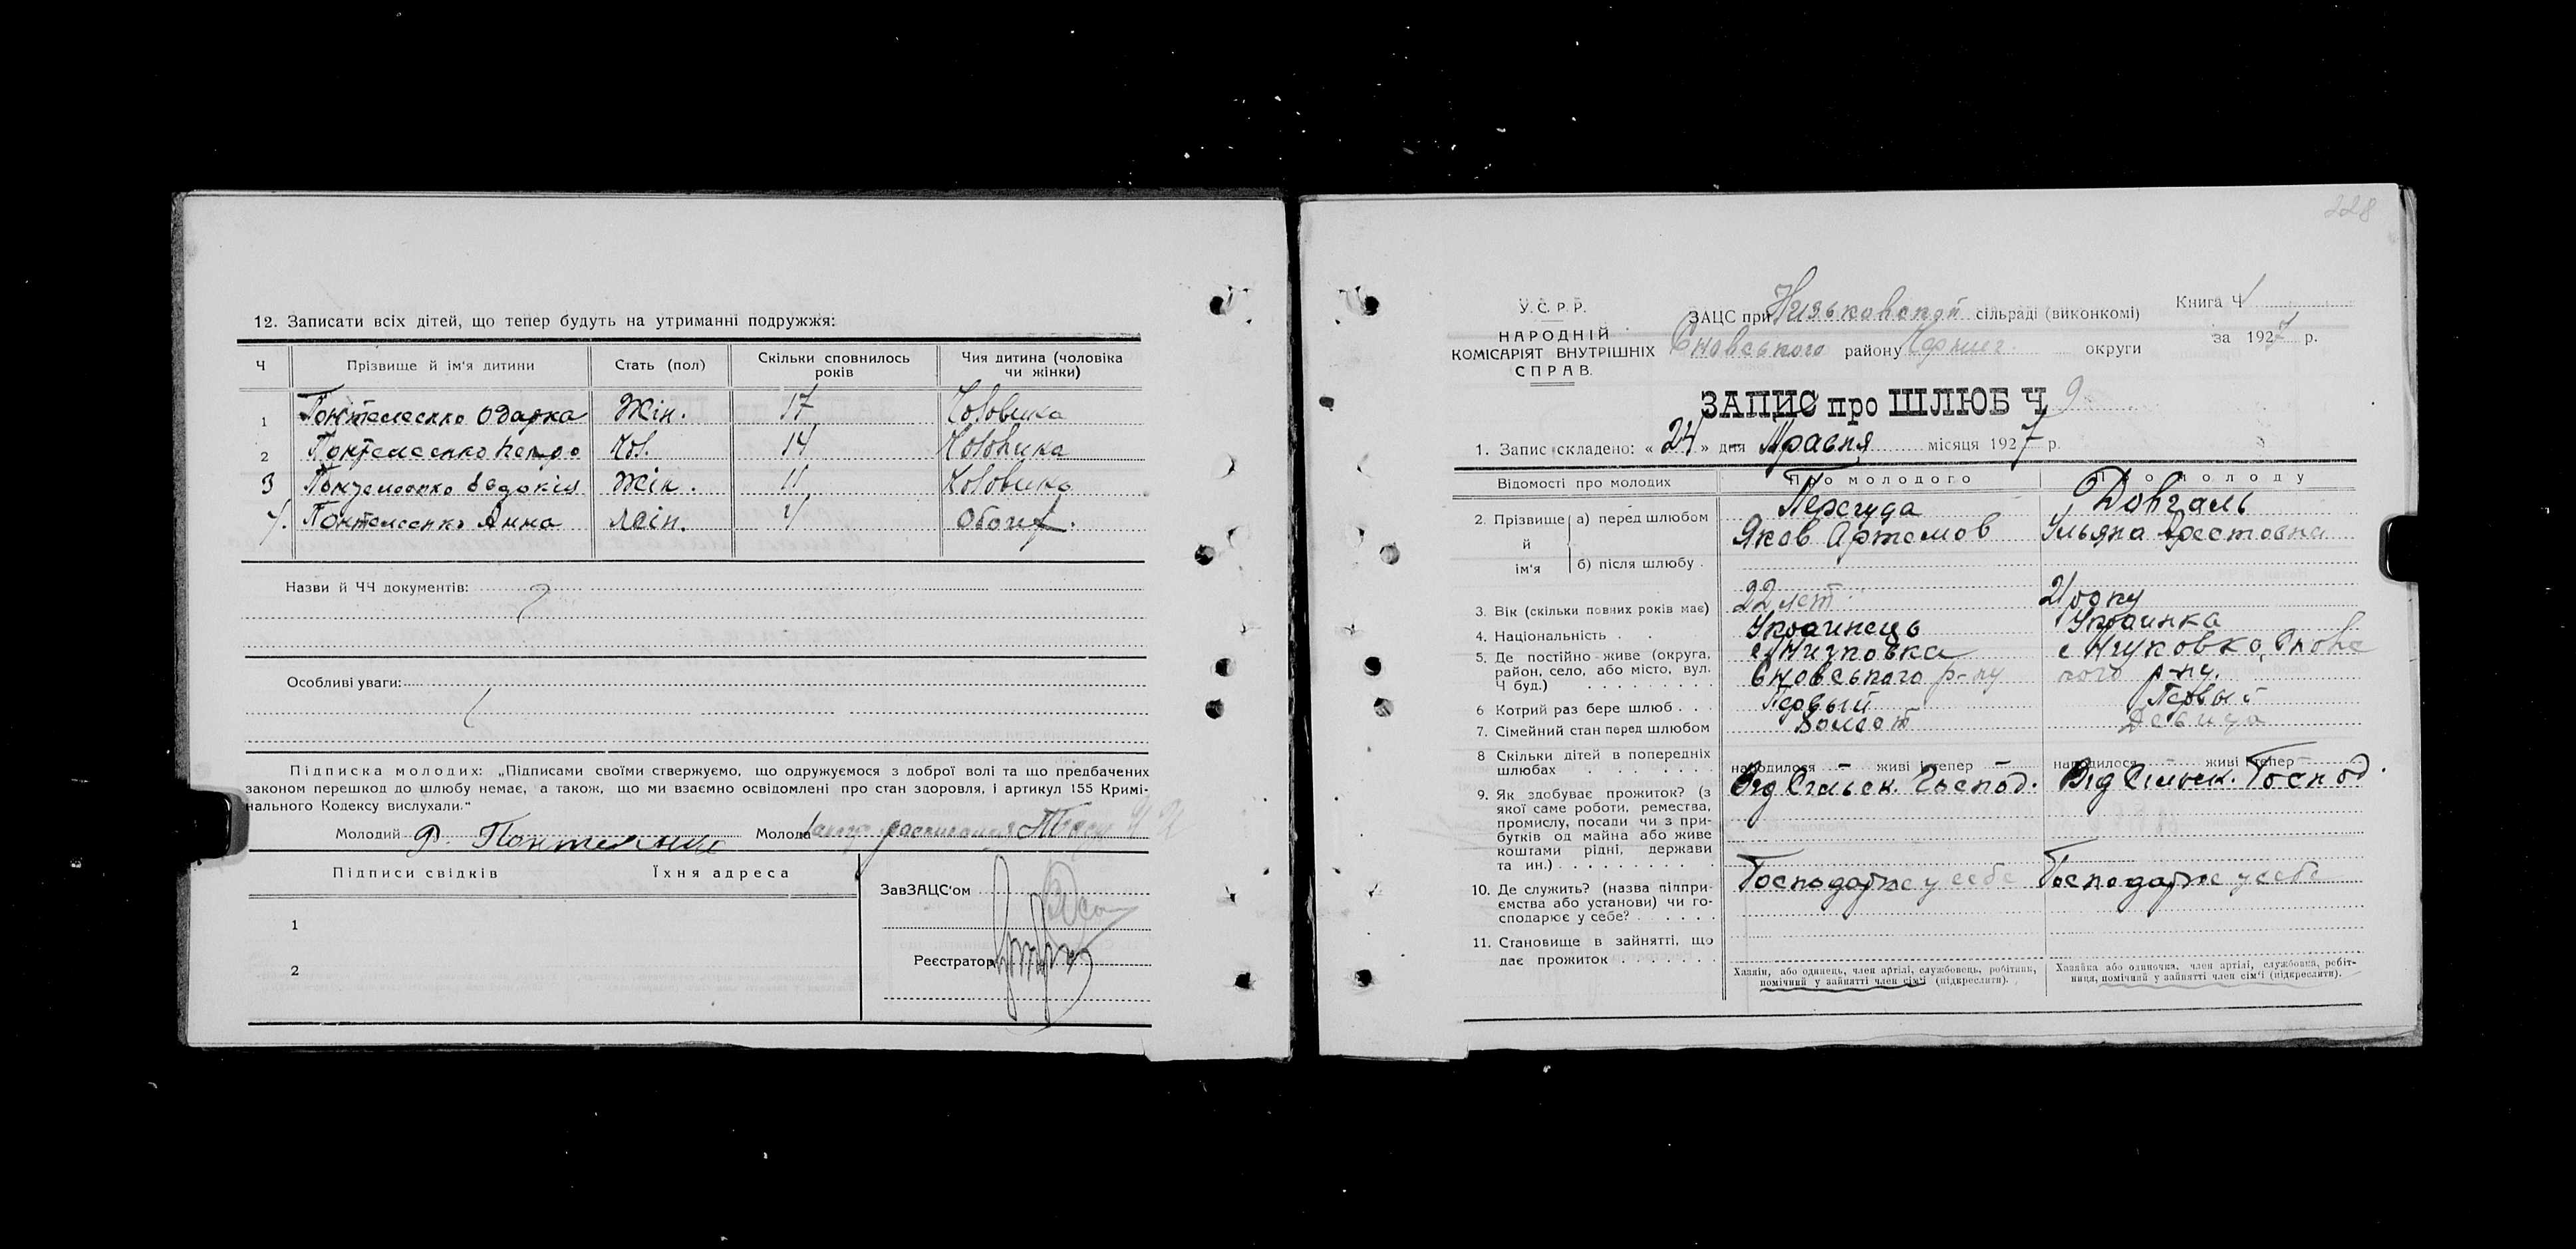 12. Записати всіх дітей, що тепер будуть на утриманні подружжя:
Ч Прізвище й ім'я дитини Стать (пол) Скільки сповнилось років Чия дитина (чоловіка чи жінки)
1 Понтеменко Одарка Жін. 17 Чоловика
2 Понтеменко Петро Чол. 14 Чоловика
3 Понтеменко Євдокія Жін. 11 Чоловика
4. Понтеменко Анна жін. 4
Назви й ЧЧ документів:
Особливі уваги:
Підписка молодих: „Підписами своїми стверджуємо, що одружуємося з доброї волі та що предбачених
законом перешкод до шлюбу немає, а також, що ми взаємно освідомлені про стан здоровля, і артикул 155 Кримі-
нального Кодексу вислухали."
Молодий Молода
Підписи свідків Їхня адреса
ЗавЗАЦС'ом
1
Реєстратор
2
228
У. С. Р. Р.
НАРОДНІЙ
КОМІСАРІЯТ ВНУТРІШНІХ
СПРАВ.
ЗАЦС при сільраді (виконкомі)
Сновського району Черниг. округи
Книга Ч 1
за 1927 р.
ЗАПИС про ШЛЮБ Ч 9
1. Запис складено: « 24 » дня Травня місяця 1927 р.
Відомості про молодих Про молодого Про молоду
2. Прізвище й ім'я а) перед шлюбом Перегуда Довгаль
Яков Артемов Ульяна Арестовна
б) після шлюбу
3. Вік (скільки повних років має) 22 лет 21 року
4. Національність Украинець Украинка
5. Де постійно живе (округа, район, село, або місто, вул. Ч буд.) с Низковка Сновського р-ну с Низковка Сновского р-ну.
6 Котрий раз бере шлюб Первый Первый
7. Сімейний стан перед шлюбом Холост Девица
8 Скільки дітей в попередніх шлюбах народилося – живі і тепер – народилося – живі тепер –
9. Як здобуває прожиток? (з якої саме роботи, ремества, промислу, посади чи з прибутків од майна або живе коштами рідні, держави та ин.) Від Сільск. Господ. Від Сільск. Господ.
10. Де служить? (назва підприємства або установи) чи господарює у себе? Господарює у себе Господарює у себе
11. Становище в зайнятті, що дає прожиток
Хазяїн, або одинець, член артілі, службовець, робітник, помічний у зайнятті член сім'ї (підкреслити).
Хазяйка або одиночка, член артілі, службовка, робітниця, помічний у зайнятті член сім'ї (підкреслити).